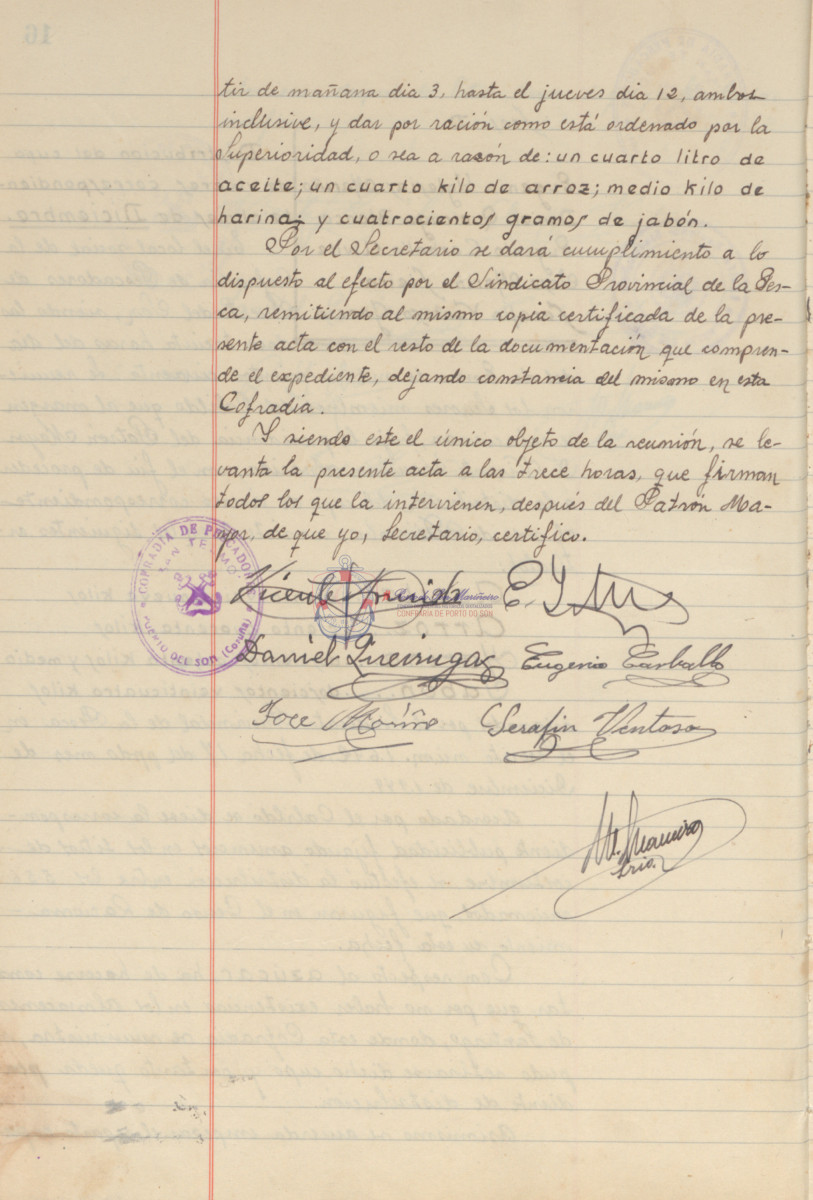 tir de mañana dia 3, hasta el jueves dia 12, ambos
inclusive, y dar por ración como está ordenado por la
Superioridad, o sea a razón de: un cuarto litro de
aceite; un cuarto kilo de arroz; medio kilo de
harina; y cuatrocientos gramos de jabón.
Por el Secretario se dará cumplimiento a lo
dispuesto al efecto por el Sindicato Provincial de la Pes-
ca, remitiendo al mismo copia certificada de la pre-
sente acta con el resto de la documentación que compren-
de el expediente, dejando constancia del mismo en esta
Cofradia.
Y siendo este el único objeto de la reunión, se le-
vanta la presente acta a las trece horas, que firman
todos los que la intervienen, después del Patrón Ma-
yor, de que yo, Secretario, certifico.
COFRADIA DE PESCADORES
SAN TELMO
PUERTO DEL SON (Coruña)
Vicente
CONFRARÍA DE PORTO DO SON
Daniel Queiruga
Eugenio Carballo
Jose Mariño
Serafin Ventoso
Srio.
16